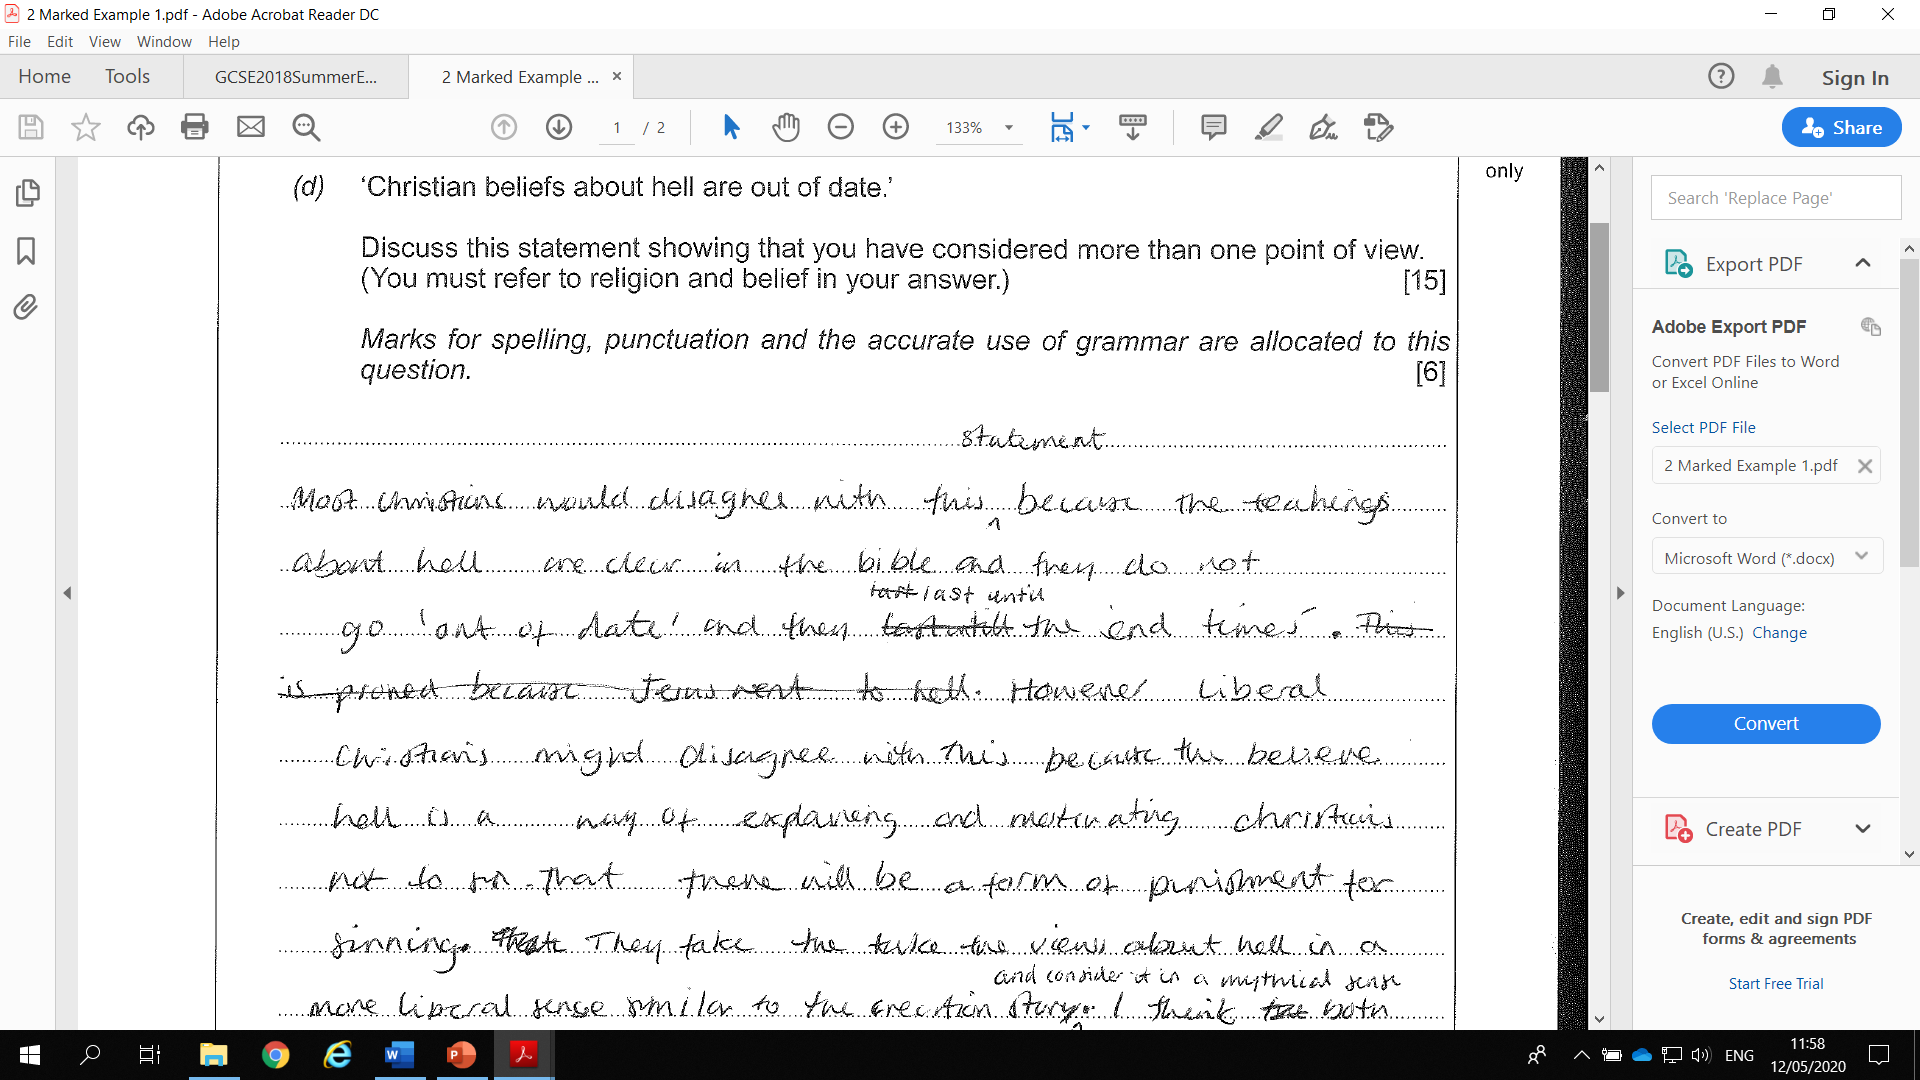 2 Marked Example 1.pdf - Adobe Acrobat Reader DC
File Edit View Window Help
Home Tools GCSE2018SummerE... 2 Marked Example ... × Sign In
1 / 2 133% Share
only
(d) ‘Christian beliefs about hell are out of date.’
Discuss this statement showing that you have considered more than one point of view.
(You must refer to religion and belief in your answer.) [15]
Marks for spelling, punctuation and the accurate use of grammar are allocated to this
question. [6]
statement
Most Christians would disagree with this ^ because the teahings
about hell are clear in the bible and they do not
last last until
go 'out of date' and they last untill the 'end times'. This
is proved because Jesus went to hell. However Liberal
Christians might disagree with this because the believe
hell is a way of explaning and motivating christians
not to sin. That there will be a form of punishment for
sinning. They take the take the views about hell in a
and consider it in a mythical sense
more liberal sense similar to the creation story. I think both
Search 'Replace Page'
Export PDF
Adobe Export PDF
Convert PDF Files to Word
or Excel Online
Select PDF File
2 Marked Example 1.pdf
Convert to
Microsoft Word (*.docx)
Document Language:
English (U.S.) Change
Convert
Create PDF
Create, edit and sign PDF
forms & agreements
Start Free Trial
ENG
11:58
12/05/2020